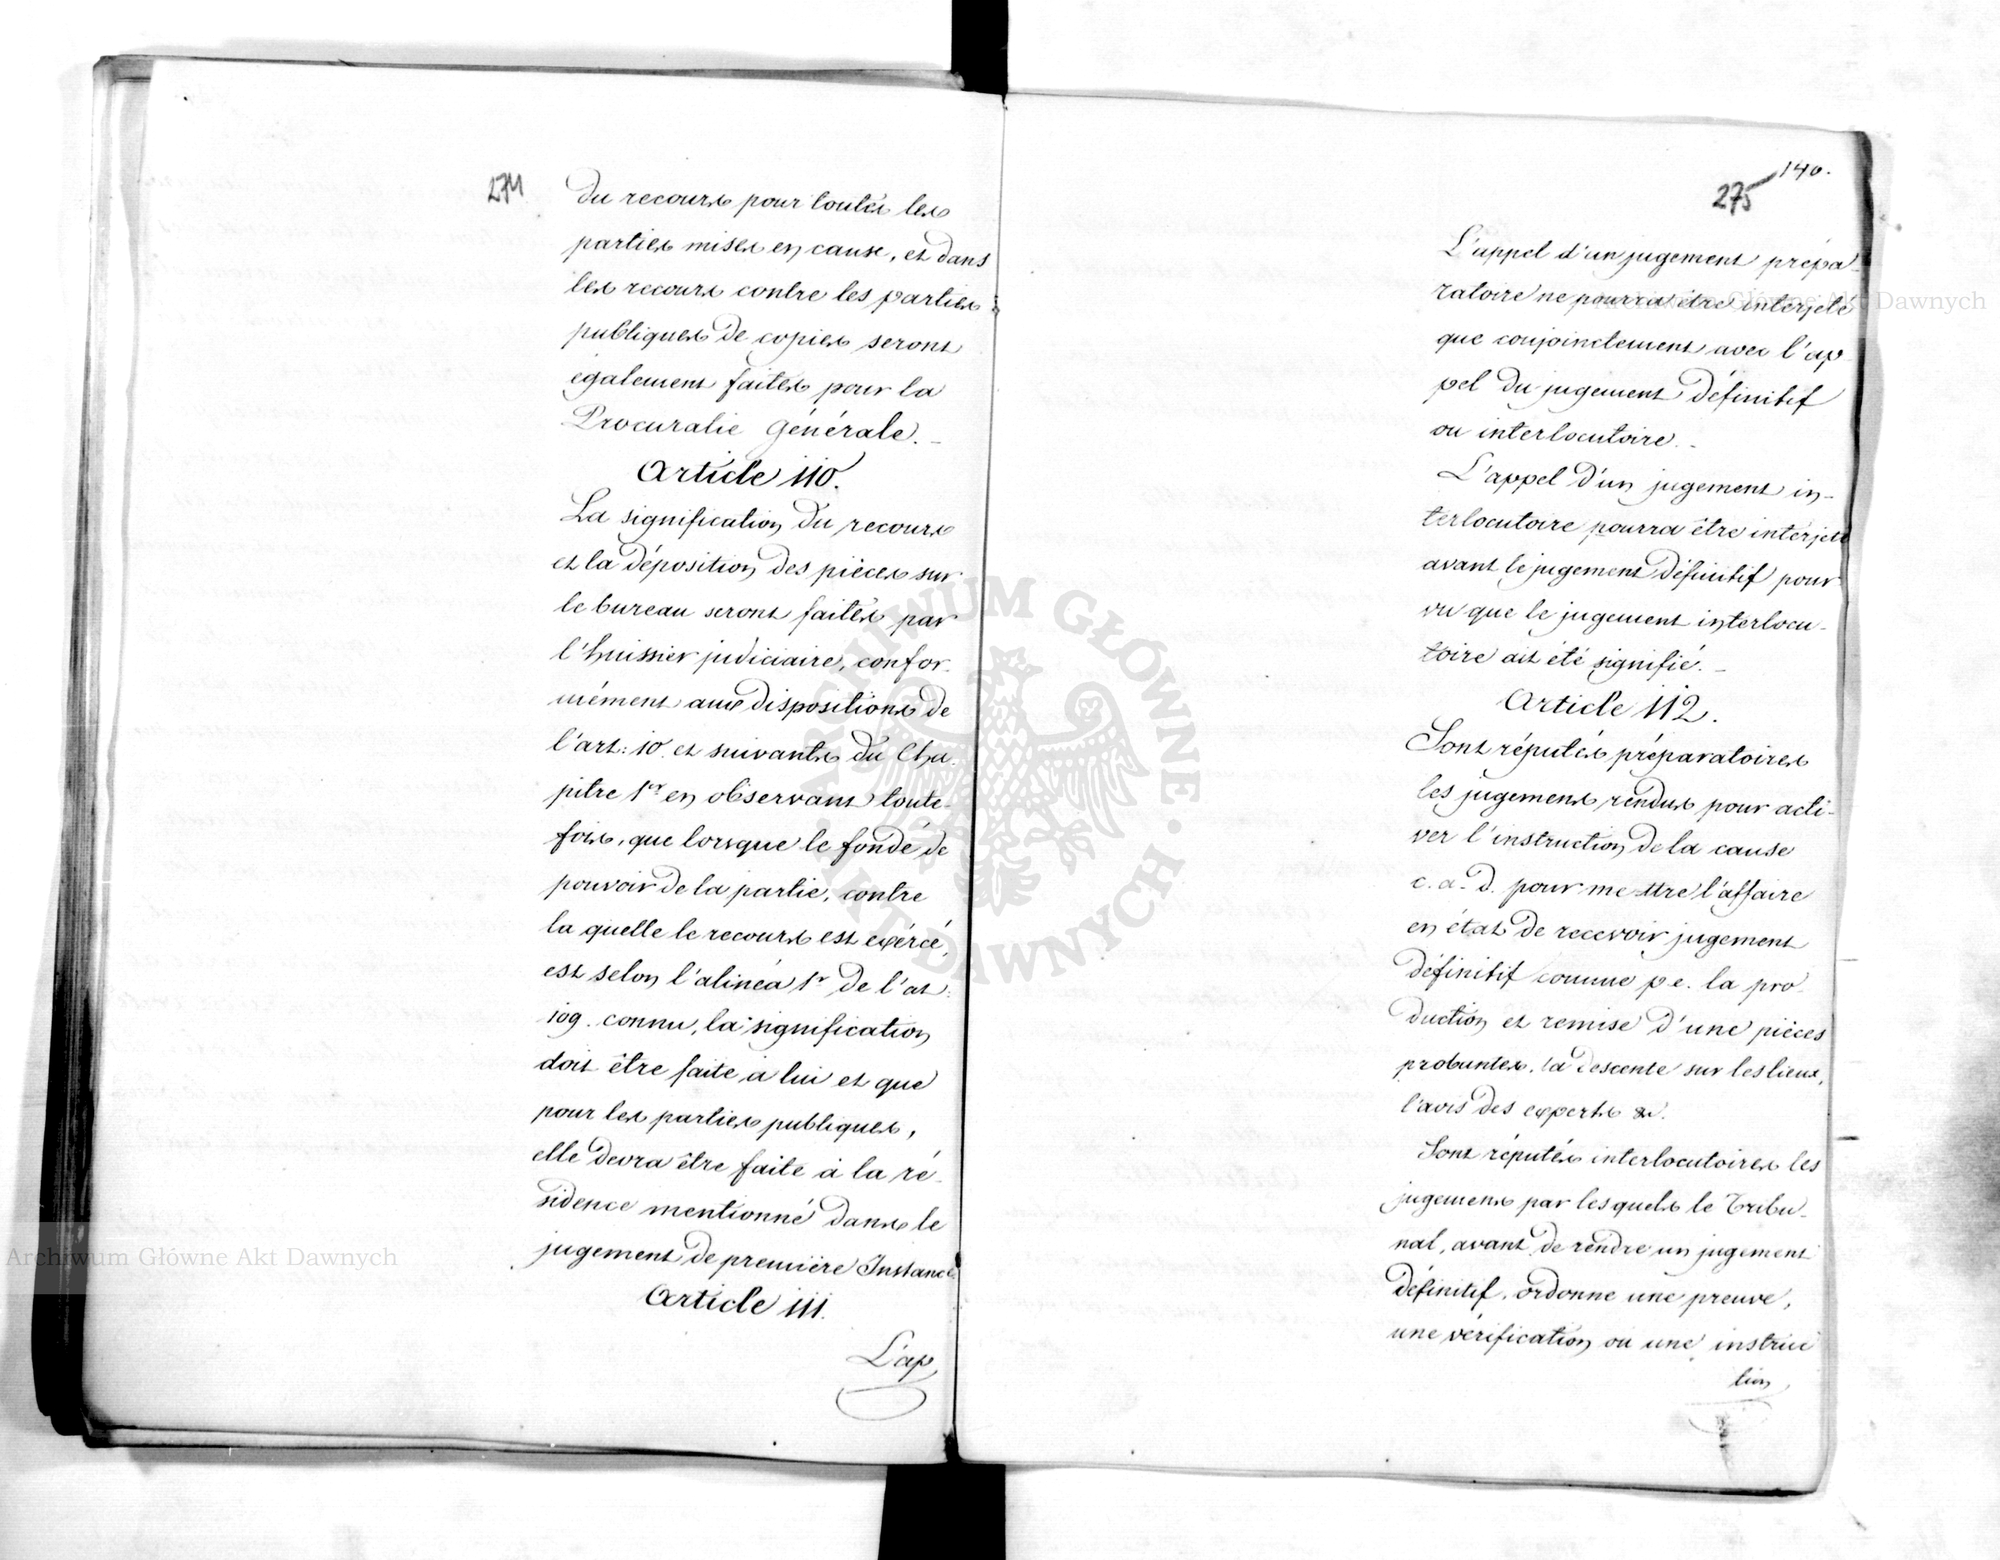 274
du recours pour toutes les
parties mises en cause, et dans
les recours contre les parties
publiques de copies seront
également faites pour la
Procuratie Générale. _
Article 110.
La signification du recours
et la déposition des pièces sur
le bureau seront faites par
l'huissier judiciaire, confor-
mément aux dispositions de
l'art: 10. et suivants du Cha-
pitre 1er en observant toute-
fois, que lorsque le fondé de
pouvoir de la partie, contre
la quelle le recours est exércé,
est selon l'alinéa 1r de l'at:
109. connu, la signification
doit être faite à lui et que
pour les parties publiques,
elle devra être faite à la ré-
sidence mentionné dans le
jugement de première Instance
Article 111.
L'ap
140.
275
L'appel d'un jugement prépa-
ratoire ne pourra être interjeté
que conjoinctement avec l'ap-
pel du jugement définitif
ou interlocutoire. _
L'appel d'un jugement in-
terlocutoire pourra être interjeté
avant le jugement définitif pour-
vu que le jugement interlocu-
toire ait été signifié. _
Article 112.
Sont réputés préparatoires
les jugemens rendus pour acti-
ver l'instruction de la cause
c. a. d. pour mettre l'affaire
en état de recevoir jugement
définitif comme p. e. la pro-
duction et remise d'une pièces
probantes, la descente sur les lieux,
l'avis des experts &c.
Sont réputés interlocutoires les
jugemens par les quels le Tribu-
nal, avant de rendre un jugement
définitif, ordonne une preuve,
une vérification ou une instruc
tion
Archiwum Główne Akt Dawnych
Archiwum Główne Akt Dawnych
ARCHIWUM GŁÓWNE · AKT DAWNYCH ·